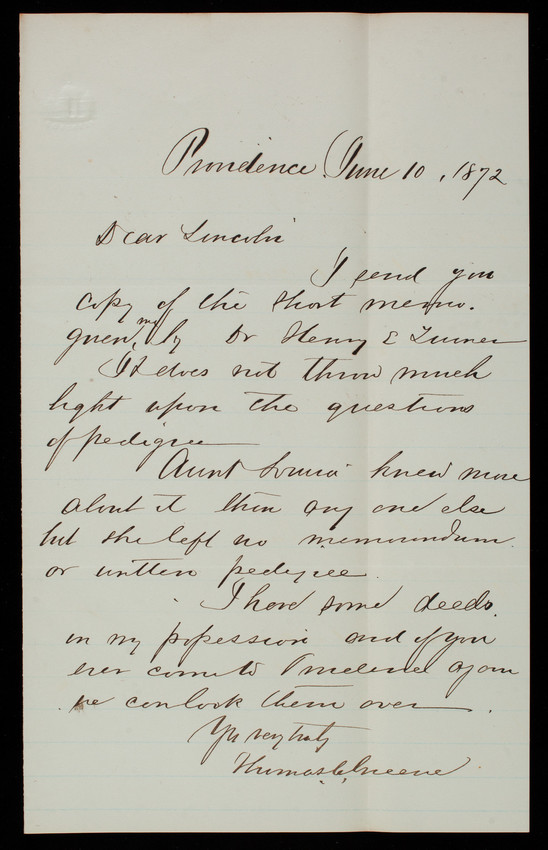 Providence June 10, 1872
Dear Lincoln
I send you
copy of the short memo.
given me by Dr Henry E Turner
It does not throw much
light upon the questions
of pedigree
Aunt Louisa knew more
about it than any one else
but she left no memorandum
or written pedigree
I have some deeds
in my possession and if you
ever come to Providence again
we can look them over.
Yrs very truly
Thomas C. Greene